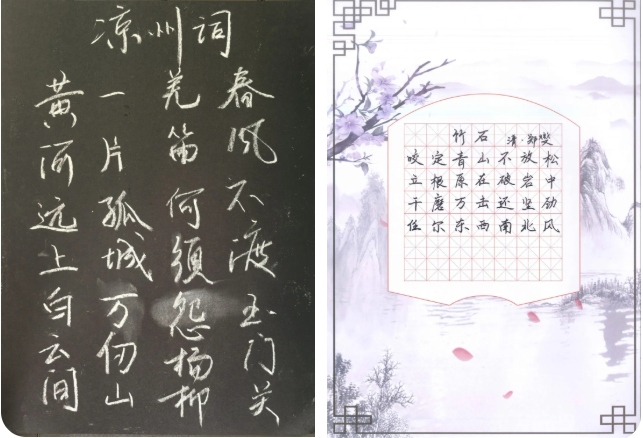 凉州词
黄河远上白云间
一片孤城万仞山
羌笛何须怨杨柳
春风不渡玉门关
竹石
清·郑燮
咬定青山不放松
立根原在破岩中
千磨万击还坚劲
任尔东西南北风